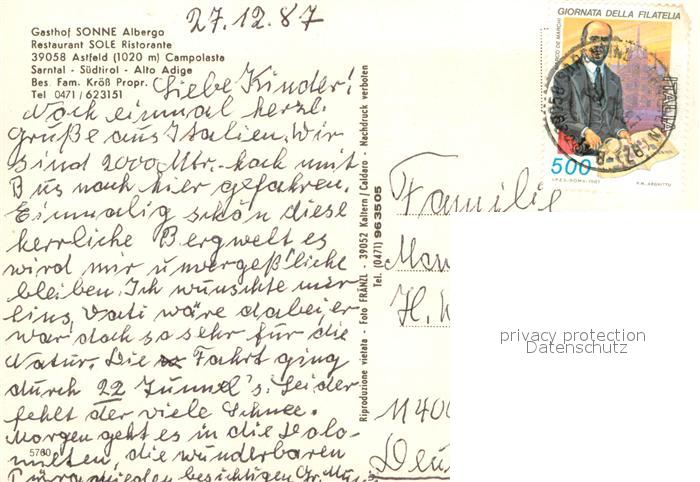 27.12.87
Gasthof SONNE Albergo
Restaurant SOLE Ristorante
39058 Astfeld (1020 m) Campolasta
Sarntal - Südtirol - Alto Adige
Bes. Fam. Kröß Propr.
Tel 0471/623151
Liebe Kinder!
Noch einmal herzl.
Grüße aus Italien. Wir
sind 2000 Mtr. hoch mit
Bus nach hier gefahren.
Einmalig schön diese
herrliche Bergwelt es
wird mir unvergeßliche
bleiben. Ich wünschte mir
eins, Vati wäre dabei, er
war doch so sehr für die
Natur. Die Fahrt ging
durch 22 Tunnel's. Leider
fehlt der viele Schnee.
Morgen geht es in die Dolo-
miten, die wunderbaren
besichtigen
5760
Riproduzione vietata - Foto FRÄNZL - 39052 Kaltern/Caldaro - Nachdruck verboten
Tel. (0471) 963505
GIORNATA DELLA FILATELIA
MARCO DE MARCHI
ITALIA
500
I.P.Z.S.-ROMA-1987
P.N. ARGHITTU
Familie
H.
privacy protection
Datenschutz